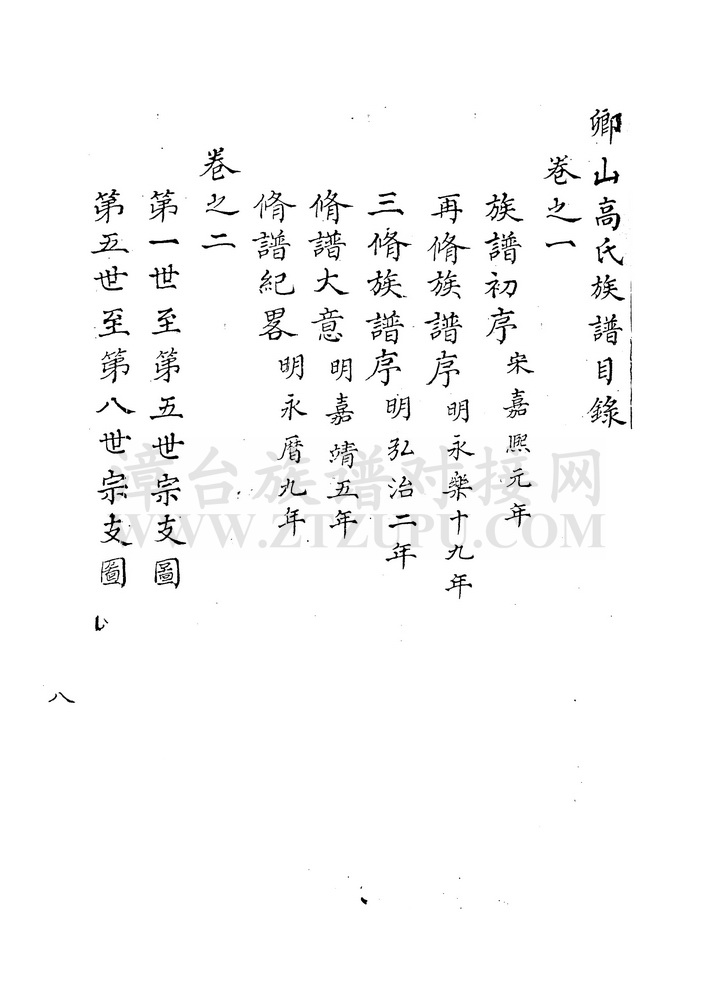 卿山高氏族譜目錄
卷之一
族譜初序 宋嘉熈元年
再脩族譜序 明永樂十九年
三脩族譜序 明弘治二年
脩譜大意 明嘉靖五年
脩譜紀畧 明永曆九年
卷之二
第一世至第五世宗支圖
第五世至第八世宗支圖
八
漳台族谱对接网
WWW.ZTZUPU.COM